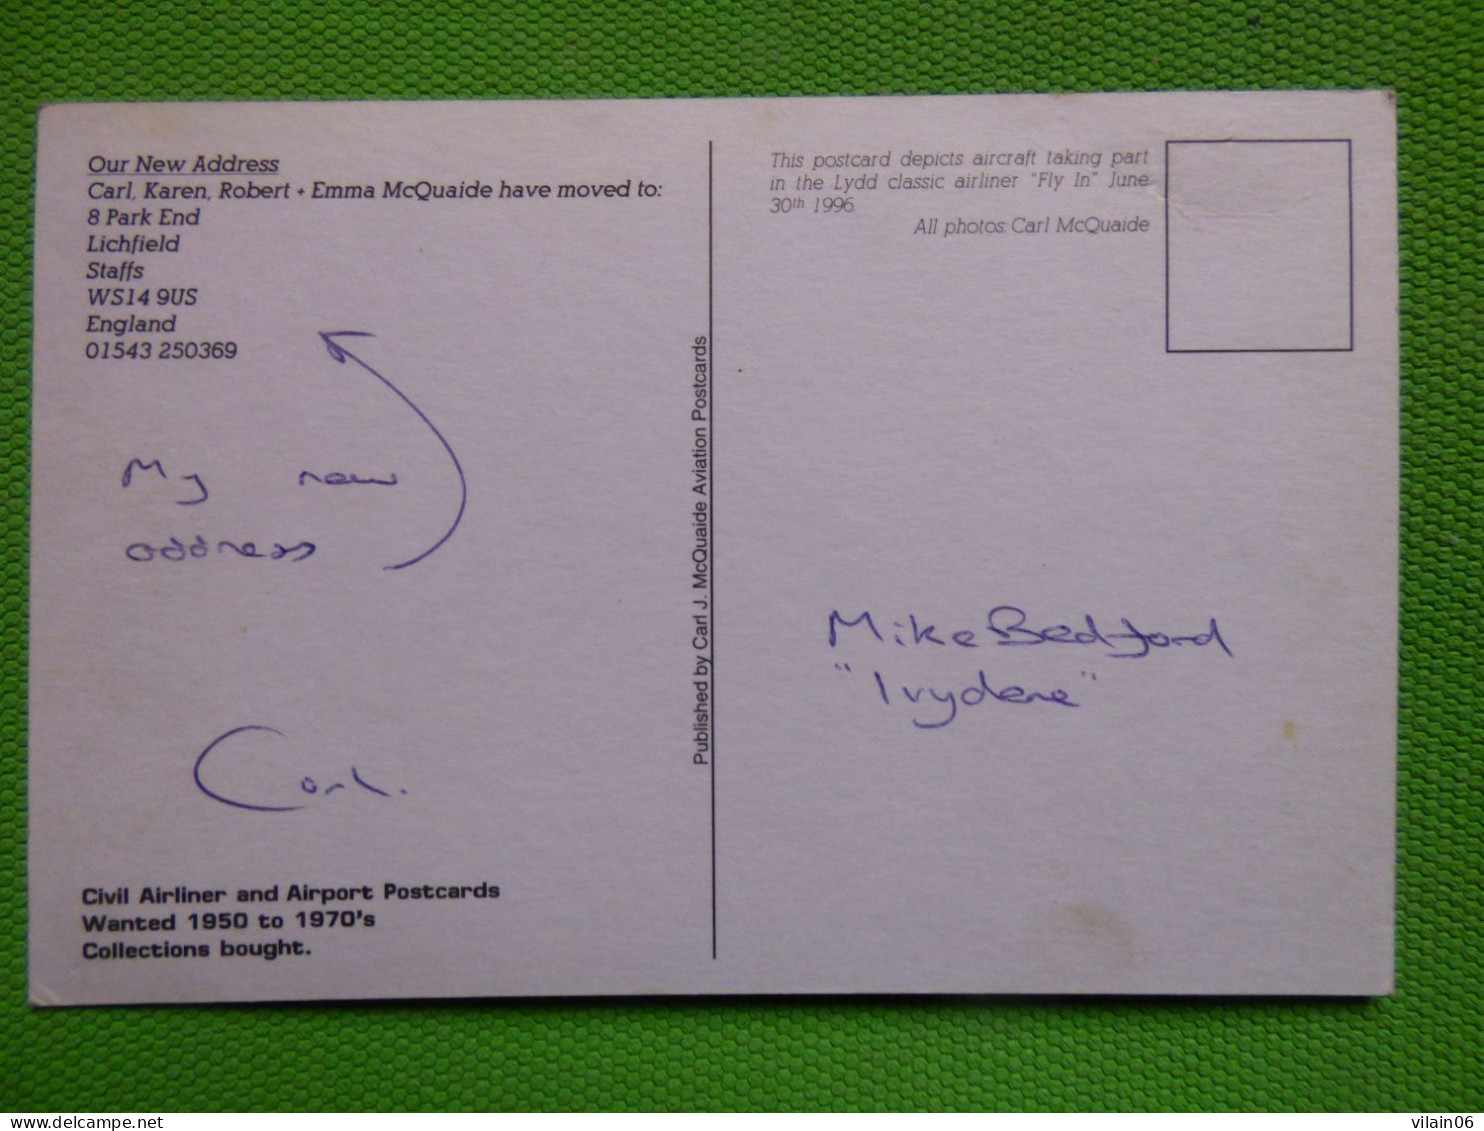 Our New Address
Carl, Karen, Robert + Emma McQuaide have moved to:
8 Park End
Lichfield
Staffs
WS14 9US
England
01543 250369
My new
address
Carl.
Civil Airliner and Airport Postcards
Wanted 1950 to 1970's
Collections bought.
Published by Carl J. McQuaide Aviation Postcards
This postcard depicts aircraft taking part
in the Lydd classic airliner "Fly In" June
30th 1996.
All photos: Carl McQuaide
Mike Bedford
"Ivydene"
delcampe.net
vilain06